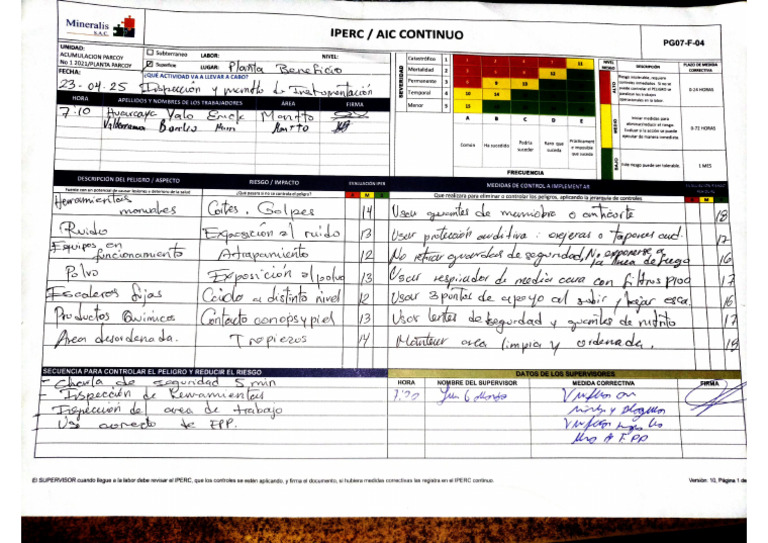 Mineralis
S.A.C.
IPERC / AIC CONTINUO
PG07-F-04
UNIDAD:
ACUMULACION PARCOY
No 1 2021/PLANTA PARCOY
Subterraneo
Superficie
LABOR:
NIVEL:
LUGAR: Planta Beneficio
FECHA:
23-04-25
¿QUÉ ACTIVIDAD VA A LLEVAR A CABO?
Inspección y mantto de Instrumentación
HORA
APELLIDOS Y NOMBRES DE LOS TRABAJADORES
ÁREA
FIRMA
7:10 Huarcaya Yalo Erick Mantto
Valderrama Mantto
SEVERIDAD
Catastrófico 1 11
Mortalidad 2
Permanente 3
Temporal 4 10 14
Menor 5 15
A B C D E
Común
Ha sucedido
Podría suceder
Raro que suceda
Prácticamente imposible que suceda
FRECUENCIA
NIVEL RIESGO
DESCRIPCIÓN
PLAZO DE MEDIDA CORRECTIVA
ALTO
Riesgo intolerable, requiere controles inmediatos. Si no se puede controlar el PELIGRO se paralizan los trabajos operacionales en la labor.
0-24 HORAS
MEDIO
Iniciar medidas para eliminar/reducir el riesgo. Evaluar si la acción se puede ejecutar de manera inmediata
0-72 HORAS
BAJO
Este riesgo puede ser tolerable.
1 MES
DESCRIPCION DEL PELIGRO / ASPECTO
RIESGO / IMPACTO
EVALUACIÓN IPER
MEDIDAS DE CONTROL A IMPLEMENTAR
A M B
Herramientas manuales Cortes, Golpes 14 Usar guantes de maniobra o anticorte 18
Ruido Exposición al ruido 13 Usar protección auditiva: orejeras o tapones aud. 17
Equipos en funcionamiento Atrapamiento 12 No retirar guardas de seguridad, No exponerse a la linea de fuego 16
Polvo Exposición al polvo 13 Usar respirador de media cara con filtros P100 17
Escaleras fijas Caida a distinto nivel 12 Usar 3 puntos de apoyo al subir / bajar esca. 16
Productos Químicos Contacto con ojos y piel 13 Usar lentes de seguridad y guantes de nitrilo 17
Area desordenada. Tropiezos 14 Mantener area limpia y ordenada. 18
SECUENCIA PARA CONTROLAR EL PELIGRO Y REDUCIR EL RIESGO
- Charla de seguridad 5 min
- Inspección de herramientas
- Inspección del area de trabajo
- Uso correcto de EPP.
DATOS DE LOS SUPERVISORES
HORA
NOMBRE DEL SUPERVISOR
MEDIDA CORRECTIVA
FIRMA
El SUPERVISOR cuando llegue a la labor debe revisar el IPERC, que los controles se estén aplicando, y firma el documento, si hubiera medidas correctivas las registra en el IPERC continuo.
Versión: 10, Página 1 de